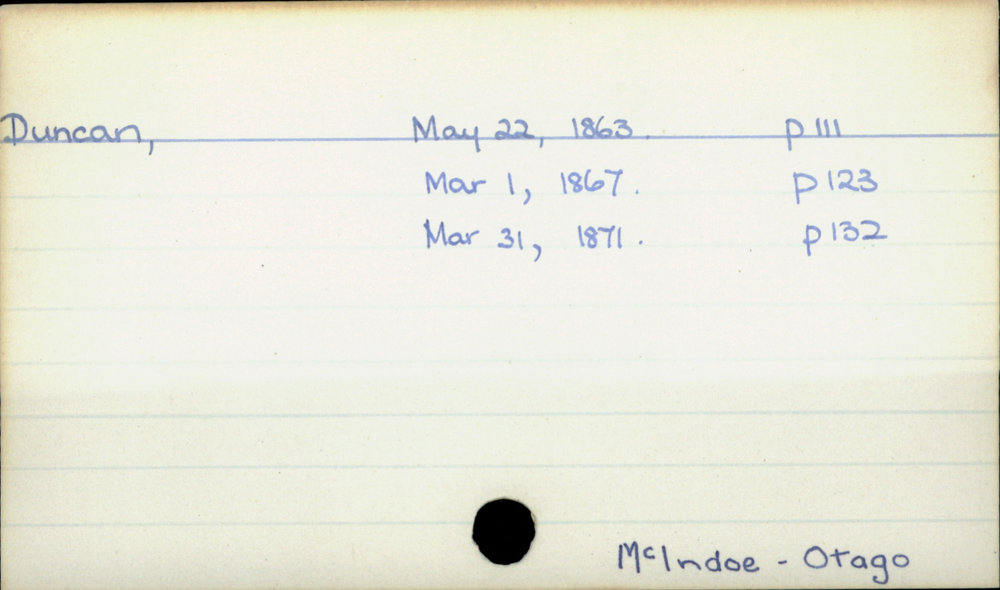 Duncan, May 22, 1863. p 111
Mar 1, 1867. p 123
Mar 31, 1871. p 132
McIndoe - Otago